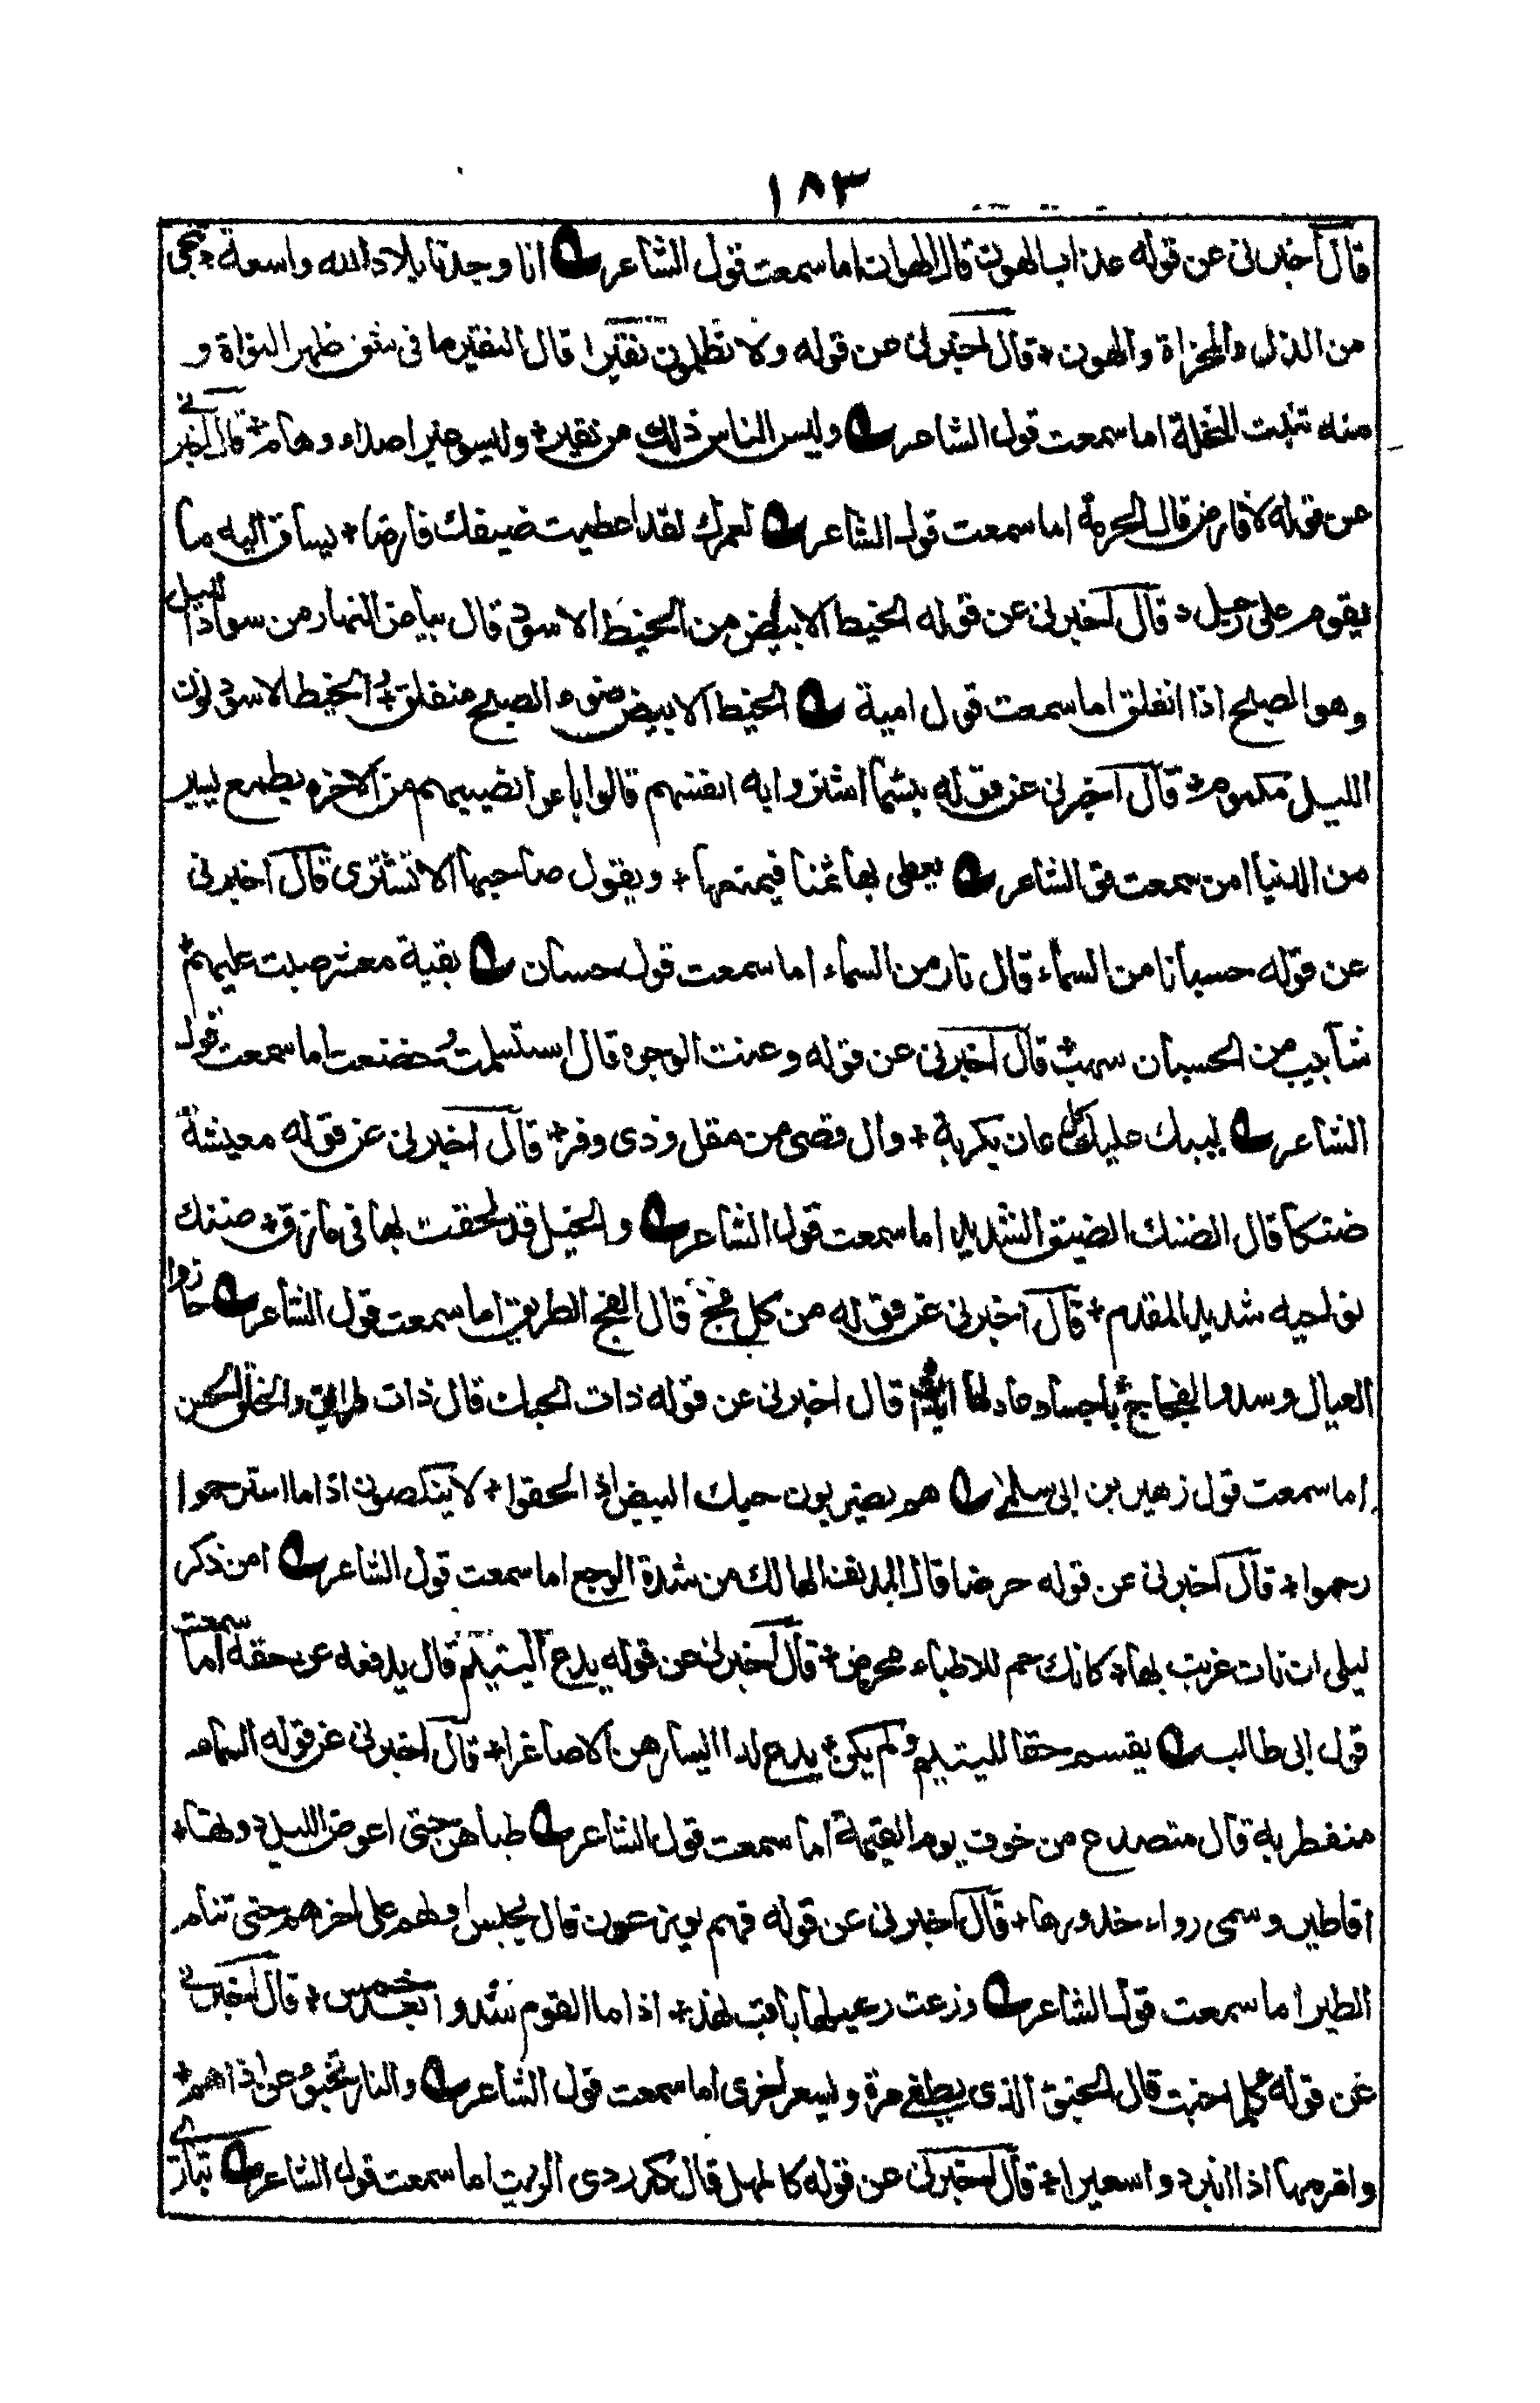 ١٨٣
قال اخبرنى عن قوله عذاب الهون قال الهوان اما سمعت قول الشاعر انا وجدنا بلاد الله واسعة + تنجى
من الذل والمخزاة والهون + قال اخبرنى عن قوله ولا تظلمون نقيرا قال النقير ما فى شق ظهر النواة و
منه تنبت النخلة اما سمعت قول الشاعر وليس الناس ذلك من نقير + وليسو غير اصداء وهام + قال اخبرنى
عن قوله لا فارض قال الهرمة اما سمعت قول الشاعر لعمرك لقد اعطيت ضيفك فارضا + يساق اليه ما
يقوم على رجل + قال اخبرنى عن قوله الخيط الابيض من الخيط الاسود قال بياض النهار من سواد الليل
وهو الصبح اذا انفلق اما سمعت قول امية الخيط الابيض ضوء الصبح منفلق + والخيط الاسود لون
الليل مكموم + قال اخبرنى عن قوله بئسما اشتروا به انفسهم قالوا باعوا نصيبهم من الاخره بطمع يسير
من الدنيا امن سمعت قو الشاعر يعطى بها ثمنا فيمنعها + ويقول صاحبها الا تشترى قال اخبرنى
عن قوله حسبانا من السماء قال نار من السماء اما سمعت قول حسان بقية معشر صبت عليهم +
شآبيب من الحسبان سهب + قال اخبرنى عن قوله وعنت الوجوه قال استسلمت وخضعت اما سمعت قول
الشاعر ليبك عليك كل عان بكربة + وال قصى من مقل وذى وفر + قال اخبرنى عن قوله معيشة
ضنكا قال الضنك الضيق الشديد اما سمعت قول الشاعر والخيل قد لحقت بها فى مازق + ضنك
نواحيه شديد المقدم + قال اخبرنى عن قوله من كل فج قال الفج الطريق اما سمعت قول الشاعر حازوا
العيال وسدوا الفجاج + باجساد عاد لها قال اخبرنى عن قوله ذات الحبك قال ذات طرايق والخلق الحسن
اما سمعت قول زهير بن ابى سلمى هم يضربون حبيك البيض اذ لحقوا + لا ينكصون اذا ما استرحموا
رحموا + قال اخبرنى عن قوله حرضا قال المدنف الهالك من شدة الوجع اما سمعت قول الشاعر امن ذكر
ليلى ان نات غربت بها + كانك حم للاطباء محرض + قال اخبرنى عن قوله يدع اليتيم قال يدفعه عن حقه اما سمعت
قول ابى طالب يقسم حقا لليتيم ولم يكن + يدع لدا ايسارهن الاصاغرا + قال اخبرنى عن قوله السماء
منفطر به قال متصدع من خوف يوم القيمة اما سمعت قول الشاعر طباهن حتى اعوض الليل دونها +
افاطير وسمى رواء خدورها + قال اخبرنى عن قوله فهم يوزعون قال يحبس اولهم على اخرهم حتى تنام
الطير اما سمعت قول الشاعر وزعت رعيلها باقب نهد + اذا ما القوم شدوا بعد خمس + قال اخبرنى
عن قوله كلما خبت قال الخبو الذى يطفى مرة ويسعر اخرى اما سمعت قول الشاعر والنار تخبو عن اذاهم +
واضرمها اذا ابتردوا سعيرا + قال اخبرنى عن قوله كالمهل قال كدردى الزيت اما سمعت قول الشاعر تبارى